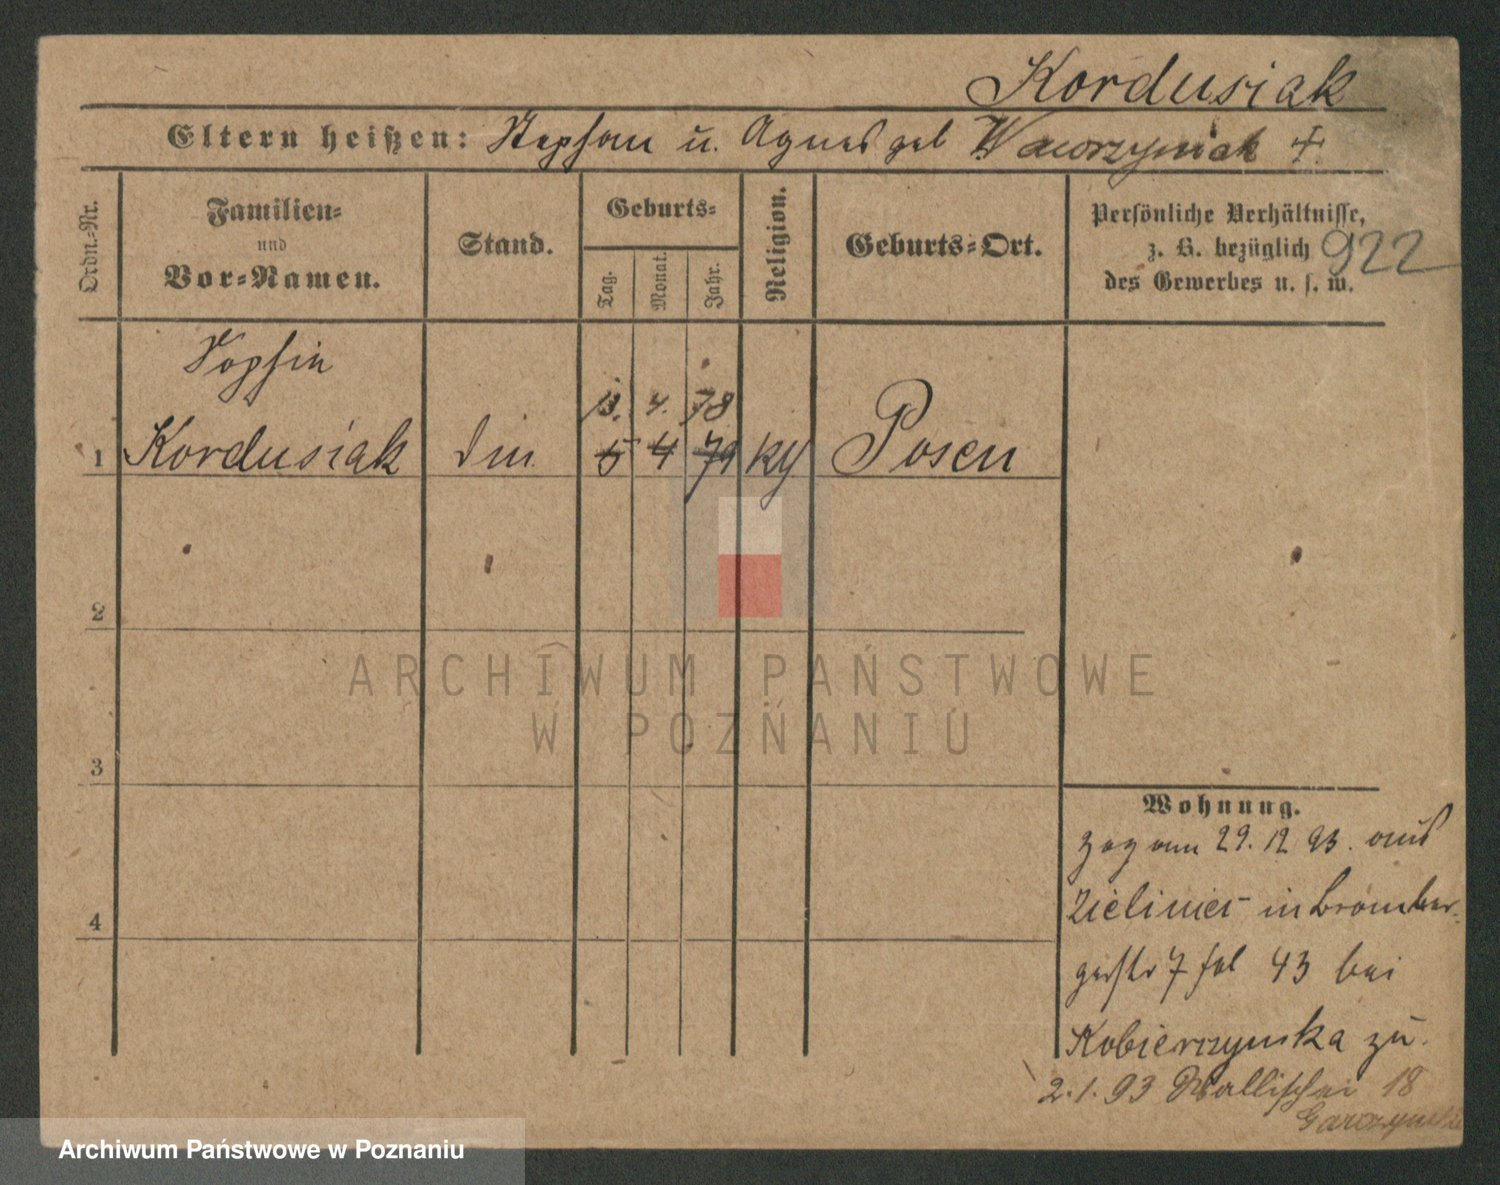 Kordusiak
Eltern heißen: Stephan u. Agnes geb Wawrzyniak +
Ordn.-Nr.
Familien-
und
Vor-Namen.
Stand.
Geburts-
Tag.
Monat.
Jahr.
Religion.
Geburts-Ort.
Persönliche Verhältnisse,
z. B. bezüglich
des Gewerbes u. s. w.
922
Sophie
13. 4. 78
1 Kordusiak 5 4 79 Posen
2
3
4
Wohnung.
zog am 29. 12 93. aus
in Bromber-
gerstr 7 43 bei
Kobierzynska zu.
2.1.93 Wallischei 18
ARCHIWUM PAŃSTWOWE
W POZNANIU
Archiwum Państwowe w Poznaniu